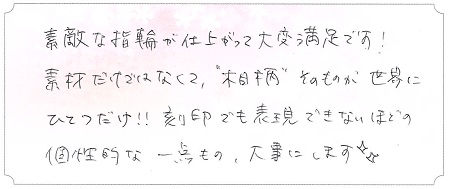 素敵な指輪が仕上がって大変満足です!
素材だけではなくて、"木目柄"そのものが世界に
ひとつだけ!!刻印でも表現できないほどの
個性的な一点もの、大事にします☆☆